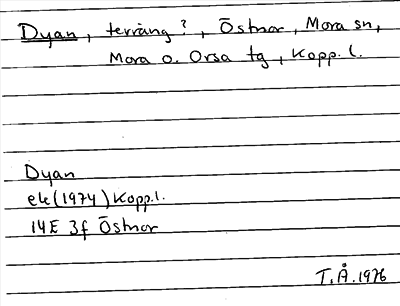 Dyan, terräng?, Östnor, Mora sn,
Mora o. Orsa tg, Kopp. l.
Dyan
ek (1974) Kopp. l.
14E 3f Östnor
T. Å. 1976